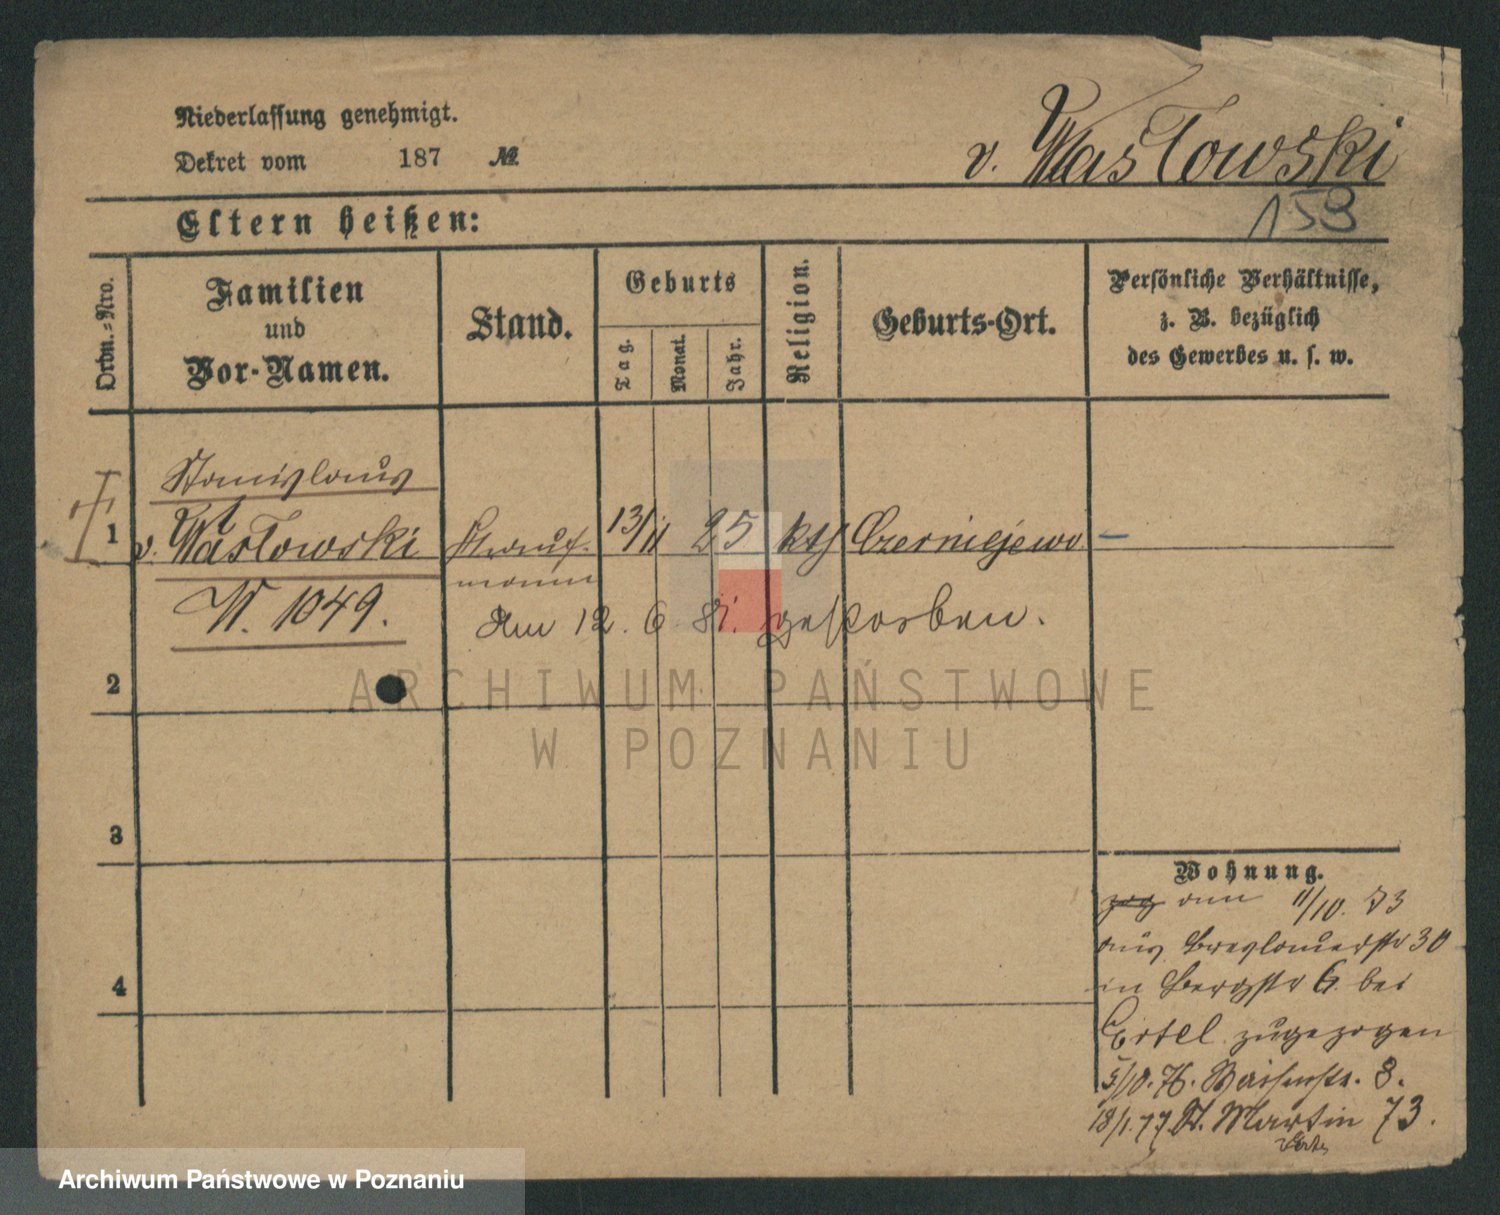 Niederlassung genehmigt.
Dekret vom 187 №
v. Wasłowski
158
Eltern heißen:
Ordn.-Nro.
Familien
und
Vor-Namen.
Stand.
Geburts
Tag.
Monat.
Jahr.
Religion.
Geburts-Ort.
Persönliche Verhältnisse,
z. B. bezüglich
des Gewerbes u. s. w.
Stanislaus
1 v. Wasłowski Kauf- 13/11 25 kth Czerniejewo –
mann
W. 1049.
Am 12. 6. 81. gestorben.
2
3
4
Wohnung.
zog am 11/10. 73
aus Breslauerstr 30
in Bergstr 6. bei
Ertel zugezogen
5/10. 76. Waisenstr. 8.
18/1. 77. St. Martin 73.
ARCHIWUM PAŃSTWOWE
W POZNANIU
Archiwum Państwowe w Poznaniu